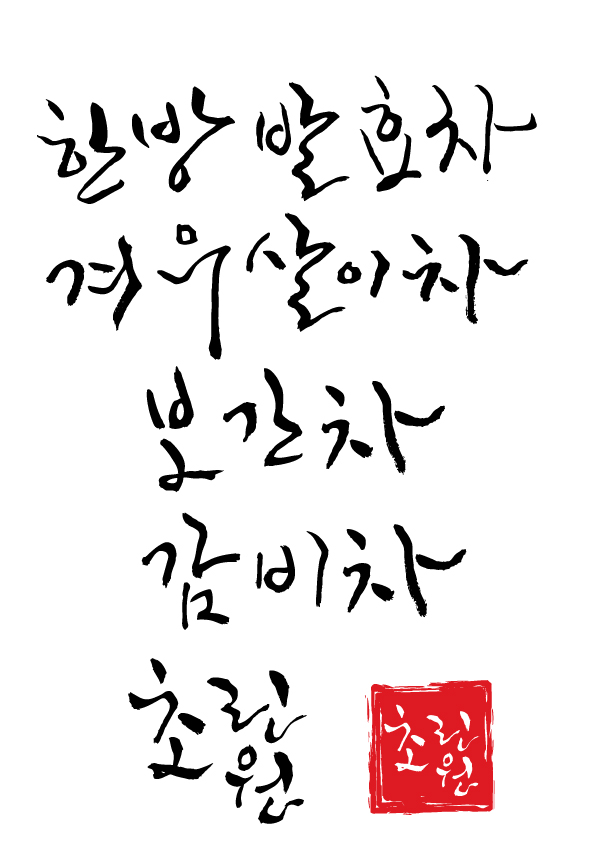 한방 발효차
겨우살이차
보간차
감비차
초린원
초린원